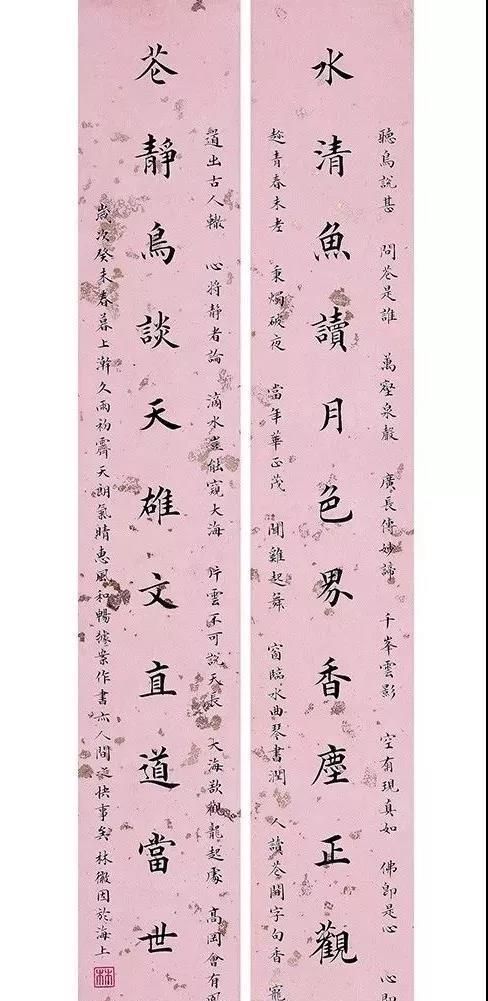 聽鳥說甚 問芲是誰 萬壑泉聲 廣長傳妙諦 千峯雲影 空有現真如 佛即是心 心即
水清魚讀月色界香塵正觀
趁青春未老 秉燭破夜 當年華正茂 聞雞起舞 窗臨水曲琴書潤 人讀芲間字句香 寵
道出古人轍 心将静者論 滴水豈能窺大海 片雲不可說天長 大海欲觀龍起處 高岡會有
芲靜鳥談天雄文直道當世
歲次癸未春暮上澣久雨初霽天朗氣晴惠風和暢據案作書亦人間快事矣林徽因於海上
林